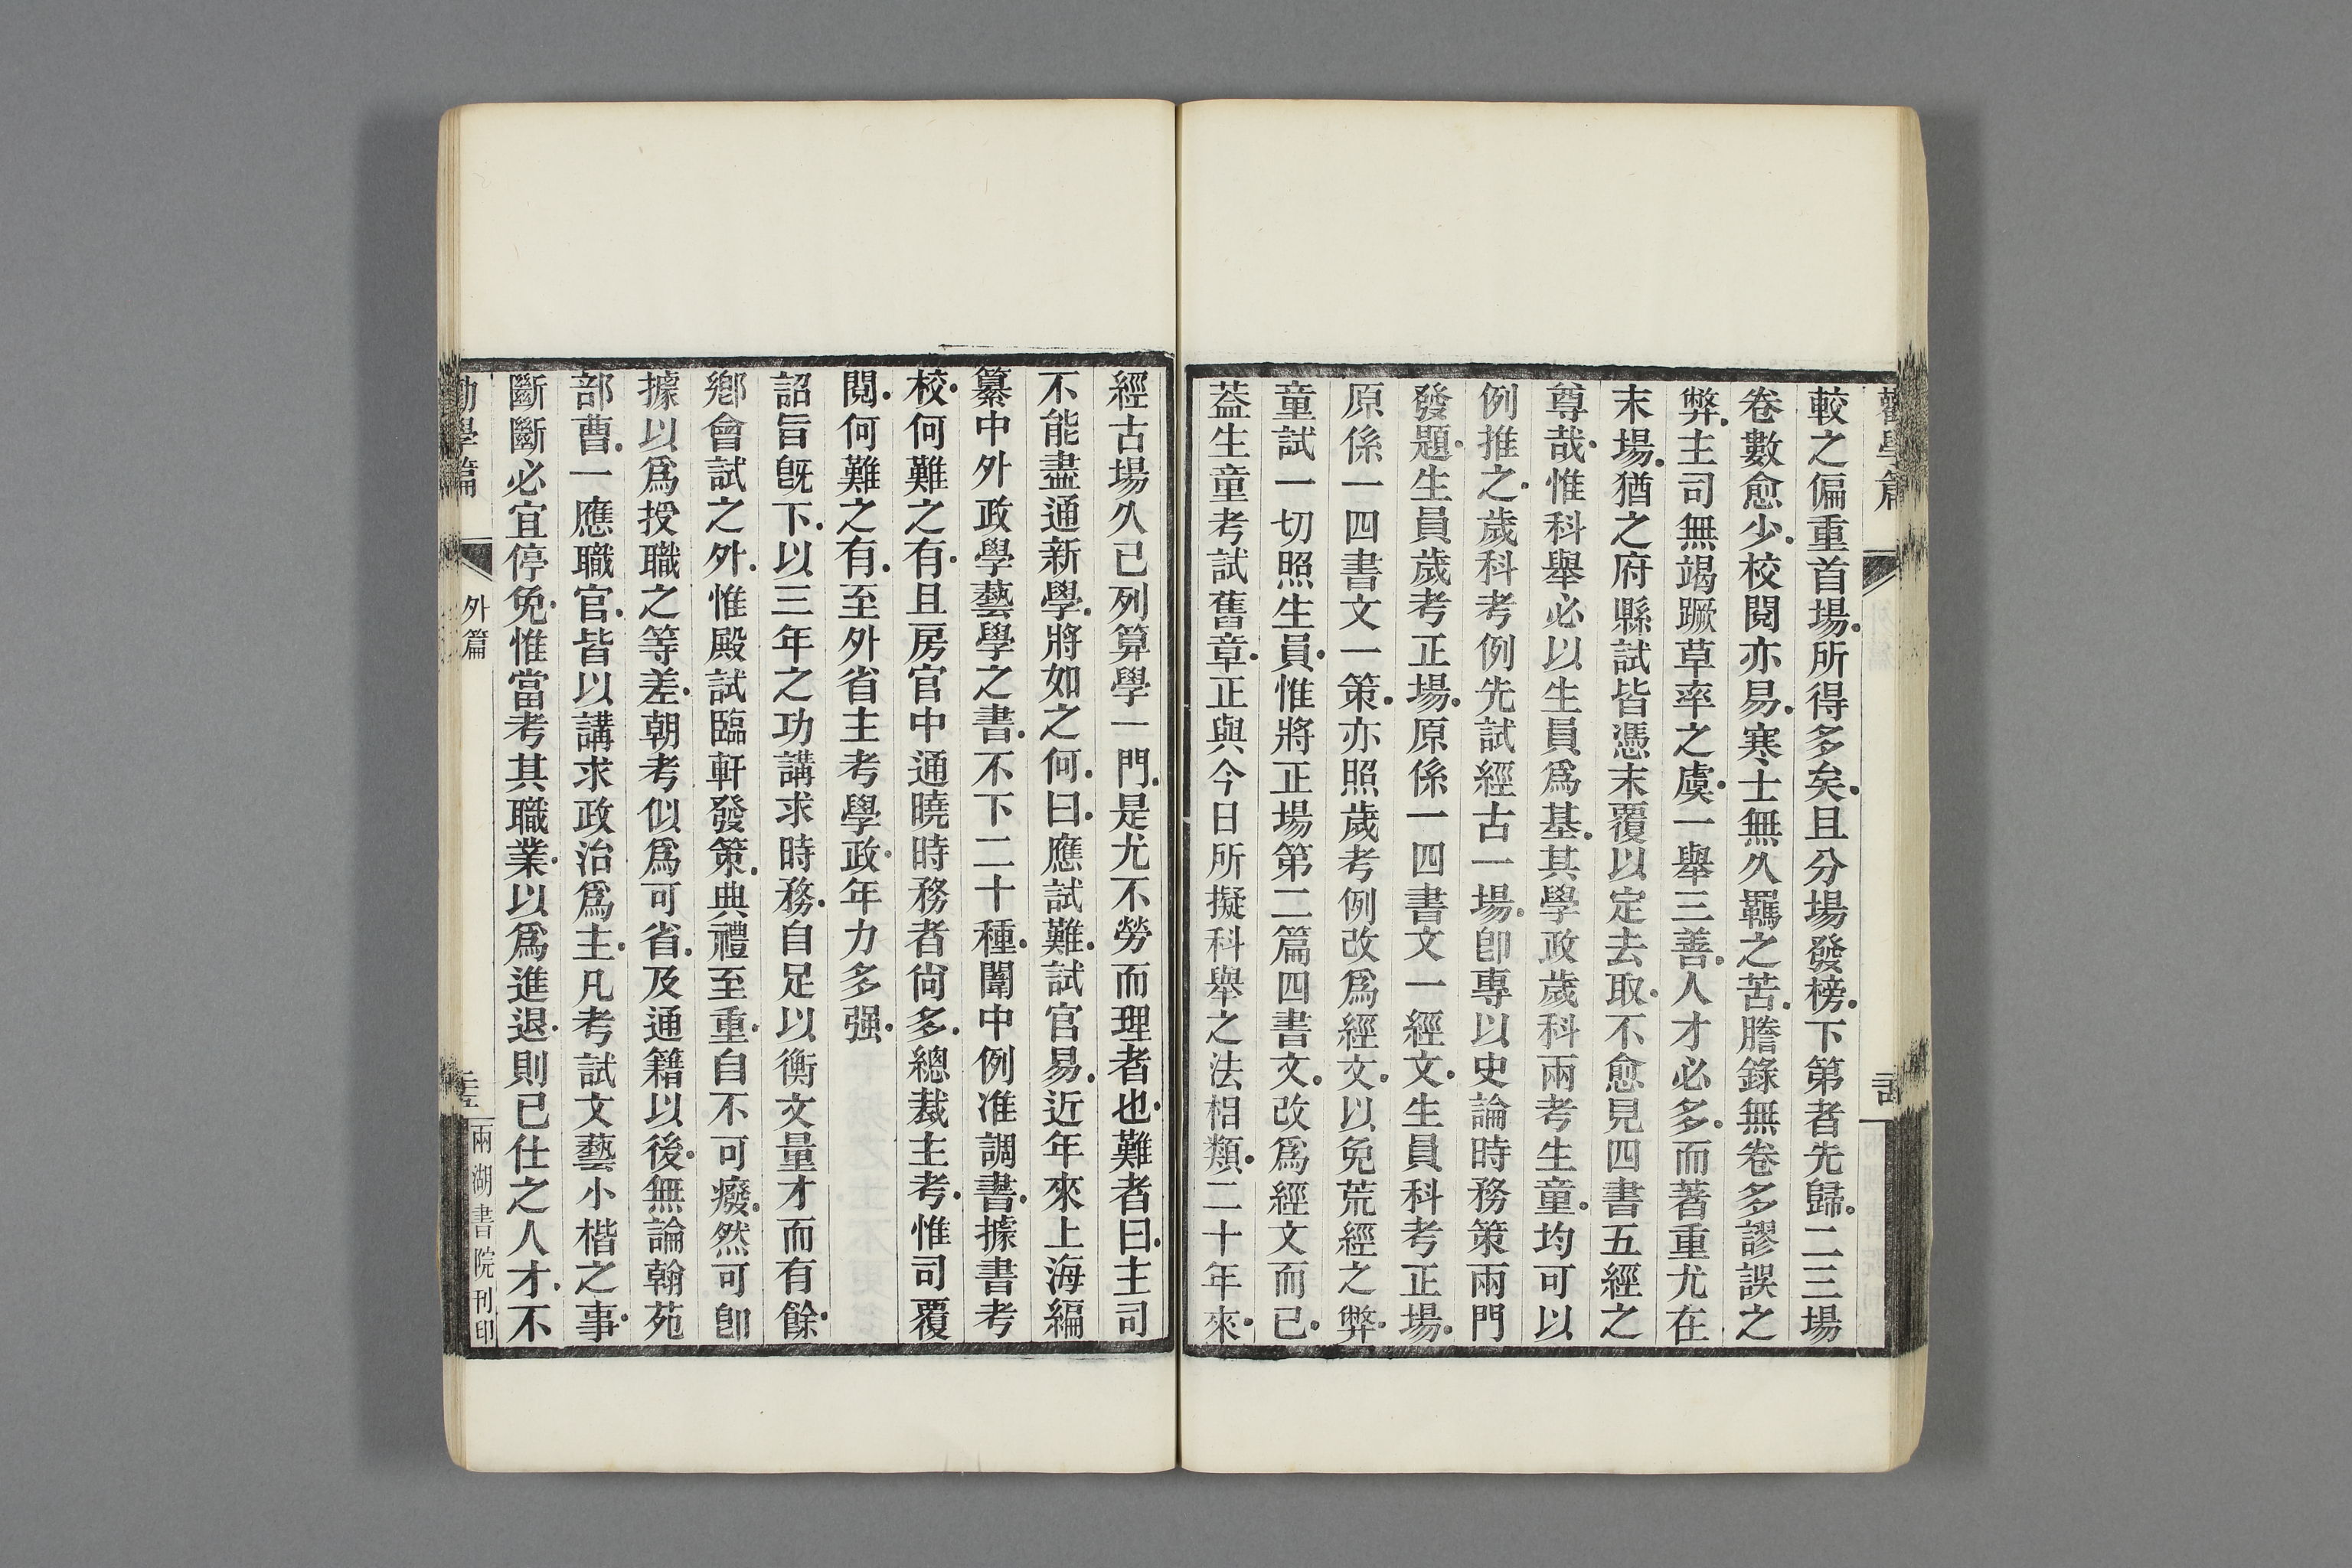 勸學篇
較之偏重首場所得多矣且分場發榜下第者先歸二三場
卷數愈少校閱亦易寒士無久羈之苦謄錄無卷多謬誤之
弊主司無竭蹶草率之虞一舉三善人才必多而著重尤在
末場猶之府縣試皆憑末覆以定去取不愈見四書五經之
尊哉惟科舉必以生員爲基其學政歲科兩考生童均可以
例推之歲科考例先試經古一場卽專以史論時務策兩門
發題生員歲考正場原係一四書文一經文生員科考正場
原係一四書文一策亦照歲考例改爲經文以免荒經之弊
童試一切照生員惟將正場第二篇四書文改爲經文而已
葢生童考試舊章正與今日所擬科舉之法相類二十年來
經古場久已列算學一門是尤不勞而理者也難者曰主司
不能盡通新學將如之何曰應試難試官易近年來上海編
纂中外政學藝學之書不下二十種闈中例准調書據書考
校何難之有且房官中通曉時務者尙多總裁主考惟司覆
閱何難之有至外省主考學政年力多强
詔旨旣下以三年之功講求時務自足以衡文量才而有餘
鄉會試之外惟殿試臨軒發策典禮至重自不可廢然可卽
據以爲授職之等差朝考似爲可省及通籍以後無論翰苑
部曹一應職官皆以講求政治爲主凡考試文藝小楷之事
斷斷必宜停免惟當考其職業以爲進退則已仕之人才不
勸學篇 外篇 兩湖書院刊印